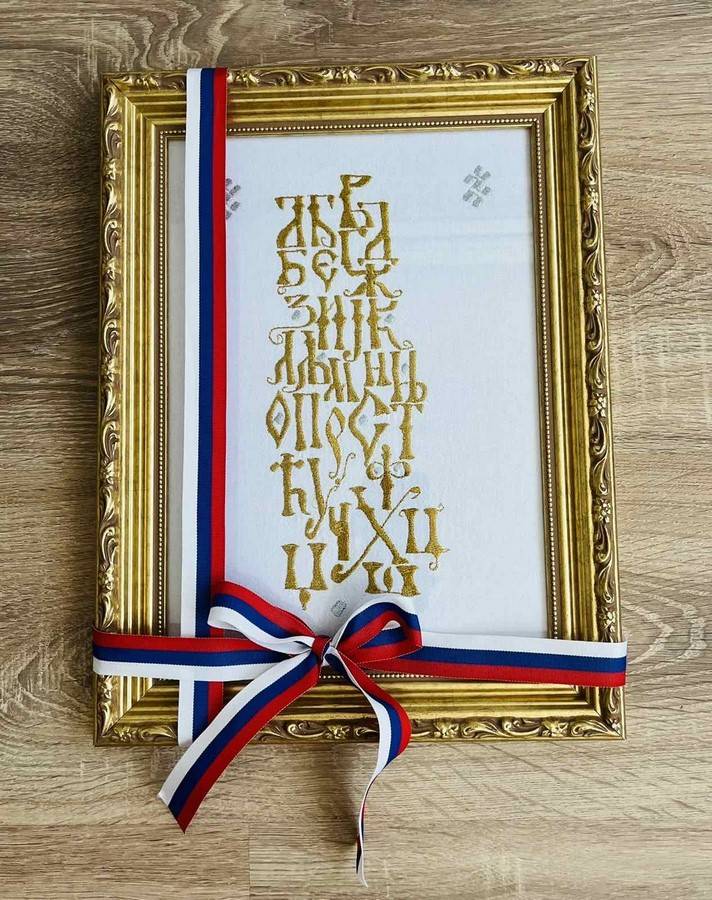 А Б В Г Д
Ђ Е Ж
З И Ј К
Л Љ М Н Њ
О П Р С Т
Ћ У Ф
Ч Х Ц
Џ Ш